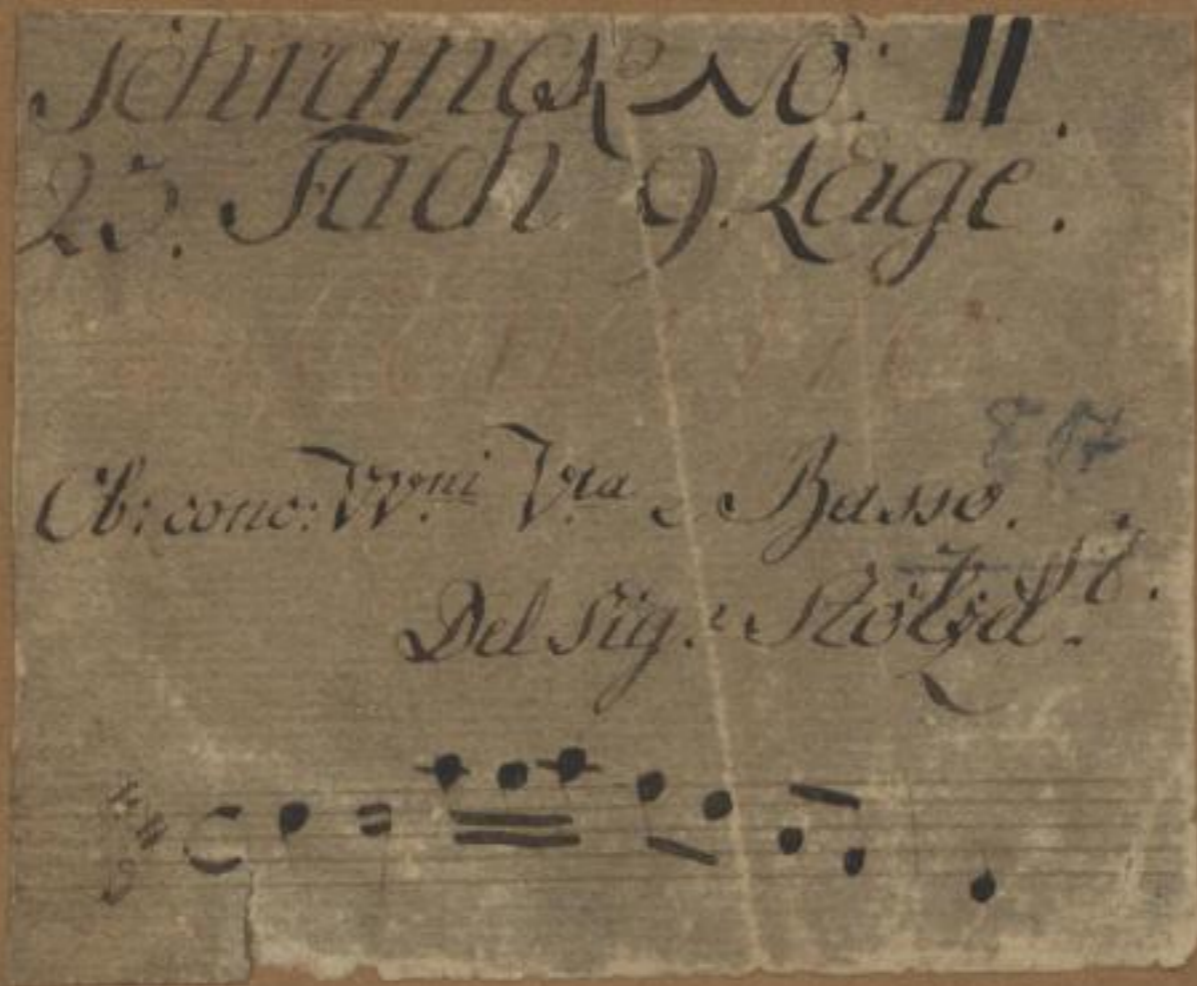 Schranck No: II.
23. Fach 9. Lage.
Ob: conc: VV.ni V.la e Basso.
Del Sig.r Stöltzel.